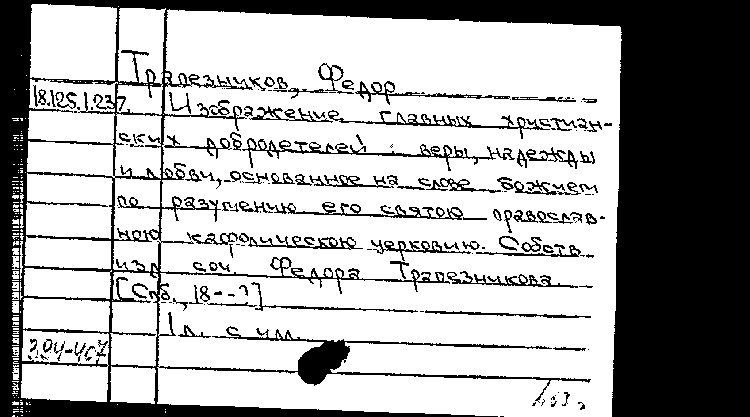 Трапезников, Федор
18.125.1.237. Изображение главных христиан-
ских добродетелей: веры, надежды
и любви, основанное на слове божием
по разумению его святою православ-
ною кафолическою церковию. Собств.
изд. соч. Федора Трапезникова.
[Спб., 18--?]
1 л. с илл.